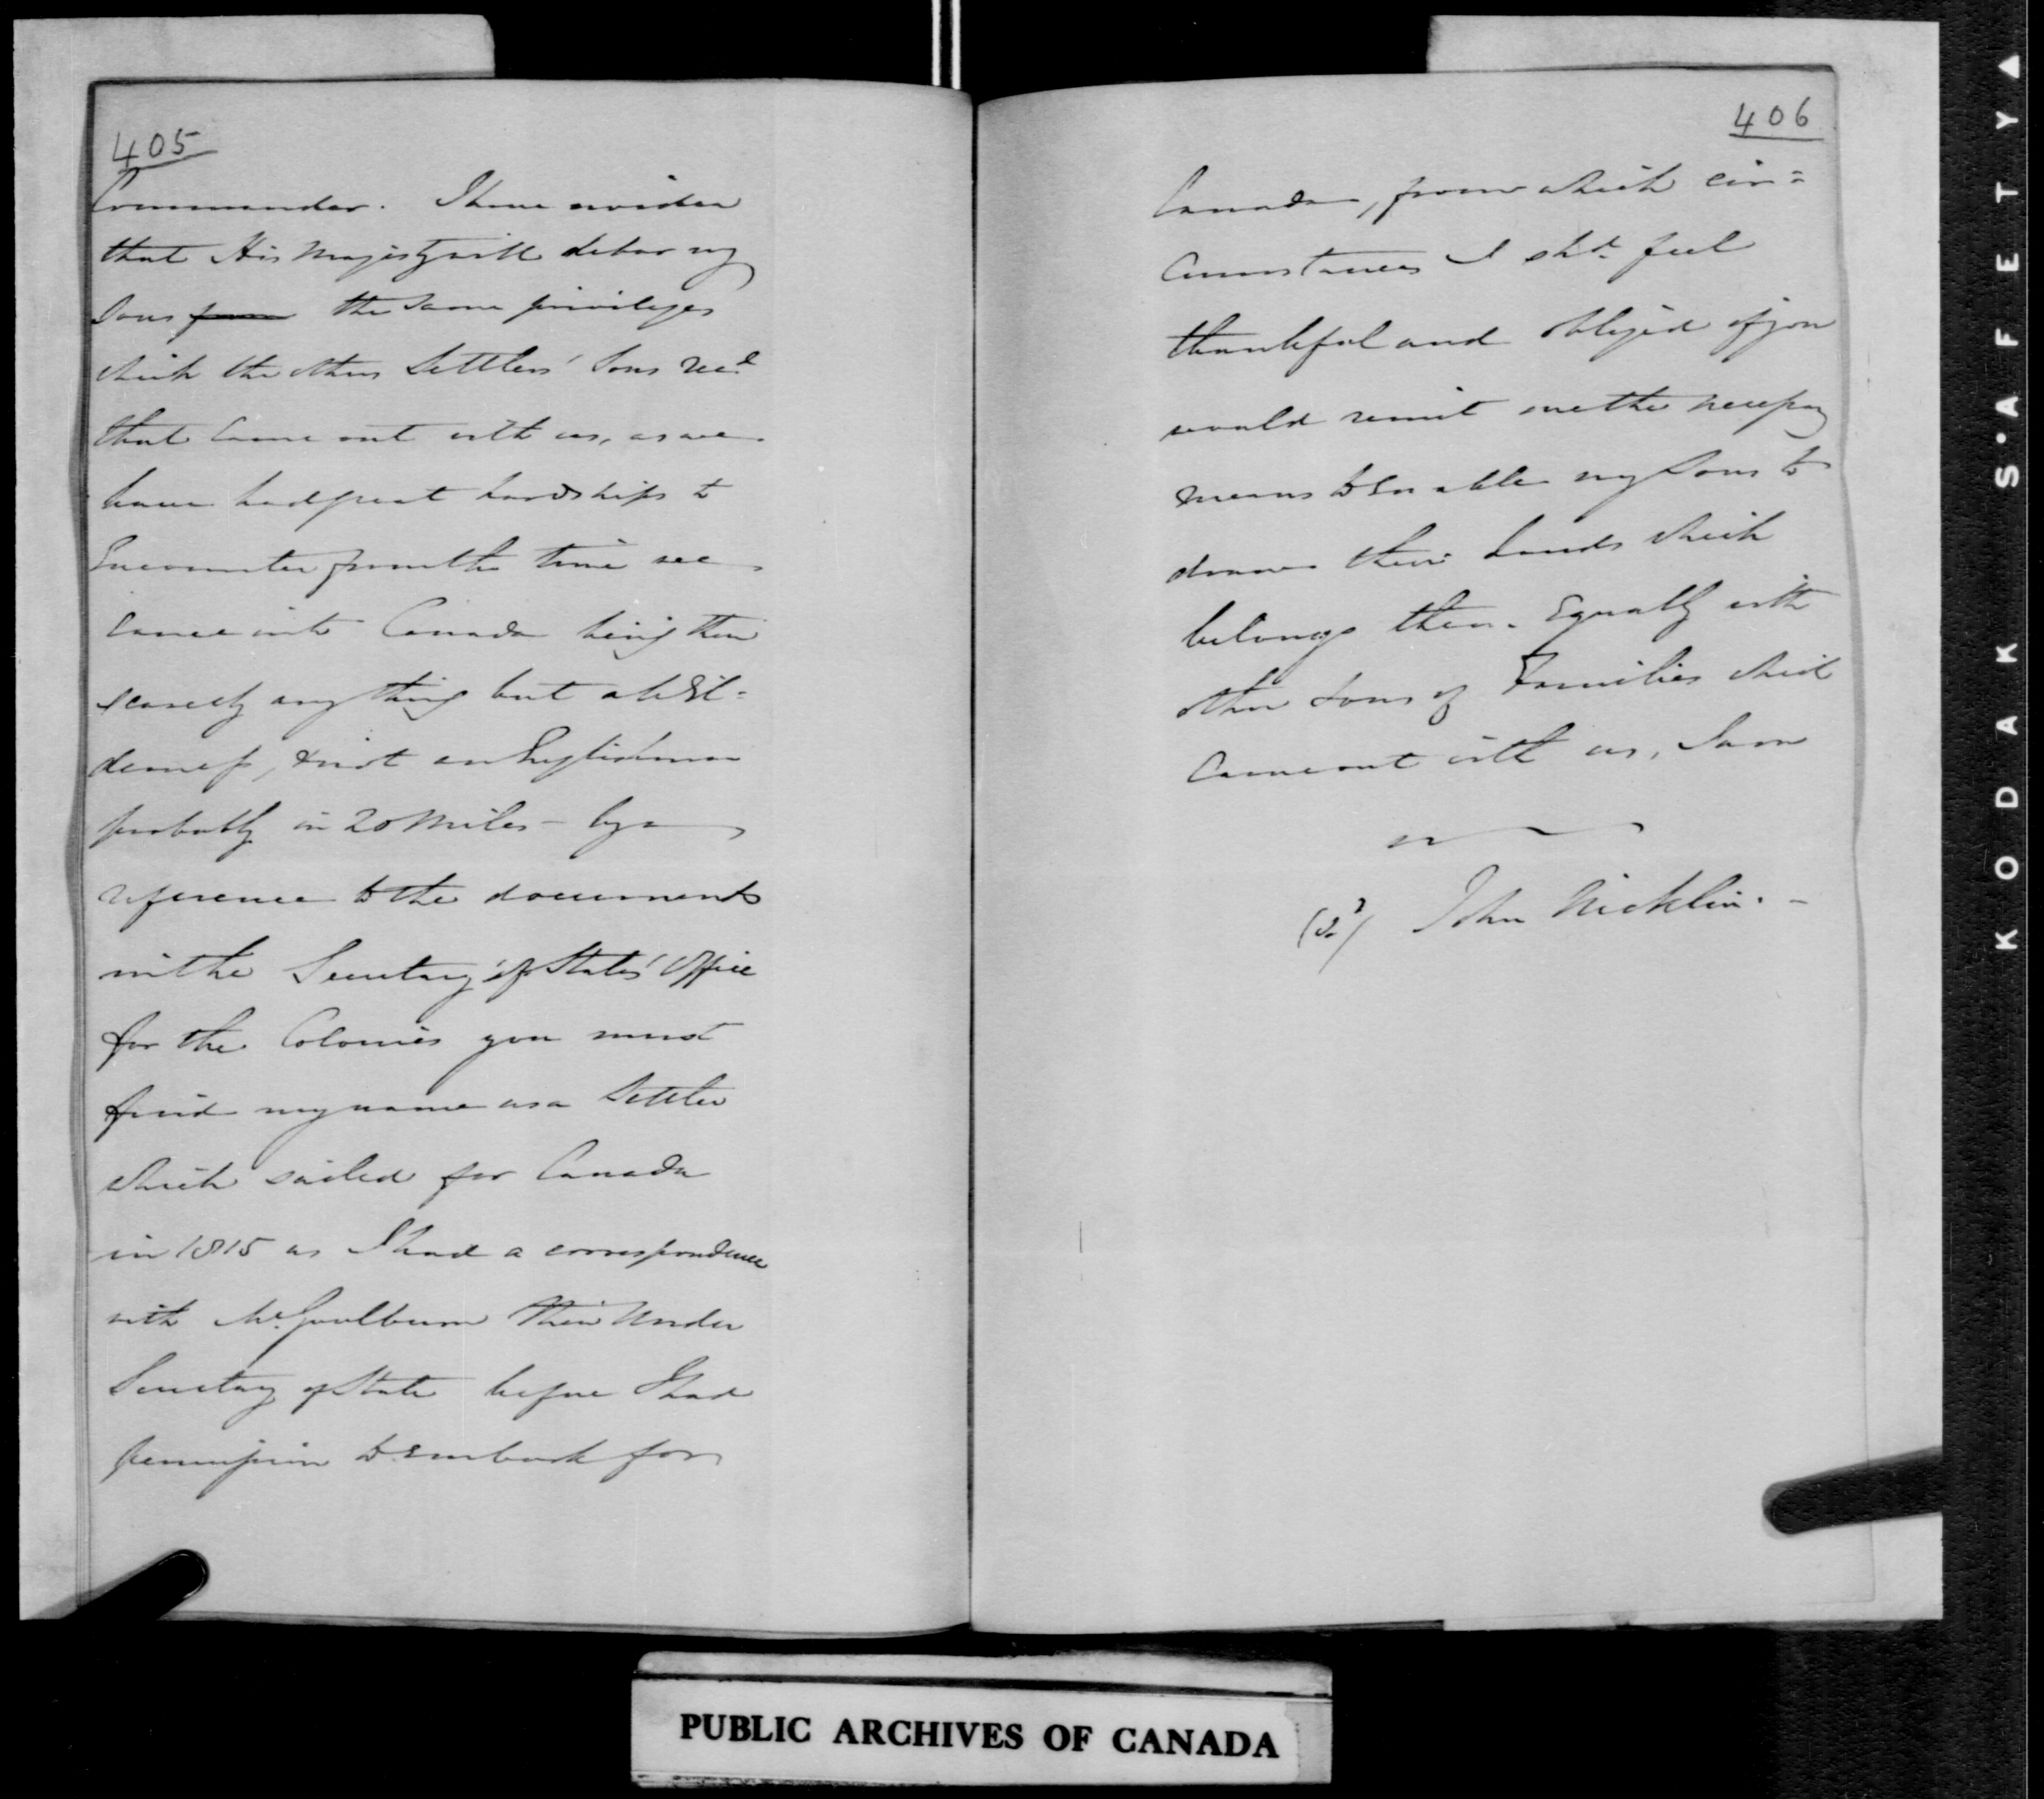 405
Commander. I have no idea
that His Majesty will debar my
Sons from the same privileges
which the other Settlers' Sons recd
that came out with us, as we
have had great hardships to
Encounter from the time we
came into Canada being then
scarcely any thing but a Wil=
derness, & not an Englishman
probably in 20 Miles - by a
reference to the documents
in the Secretary of States' Office
for the Colonies you must
find my name as a Settler
which sailed for Canada
in 1815 as I had a correspondence
with Mr. Goulburn then Under
Secretary of State before I had
permission to Embark for
406
Canada, from which cir=
cumstances I shd. feel
thankful and obliged if you
would remit me the necessary
means to Enable my Sons to
draw their Lands which
belongs them Equally with
other Sons of Families which
Came out with us, I am
(Sd.) John Nicklin. -
PUBLIC ARCHIVES OF CANADA
KODAK S·A F E T Y ▲